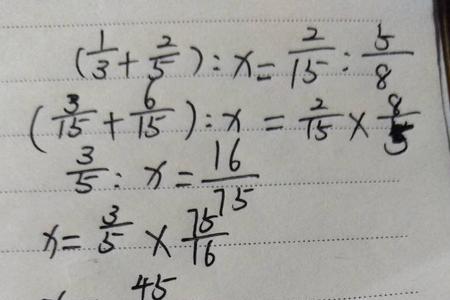 (1/3 + 2/5) : x = 2/15 : 5/8
(3/15 + 6/15) : x = 2/15 × 8/5
3/5 : x = 16/75
x = 3/5 × 75/16
45